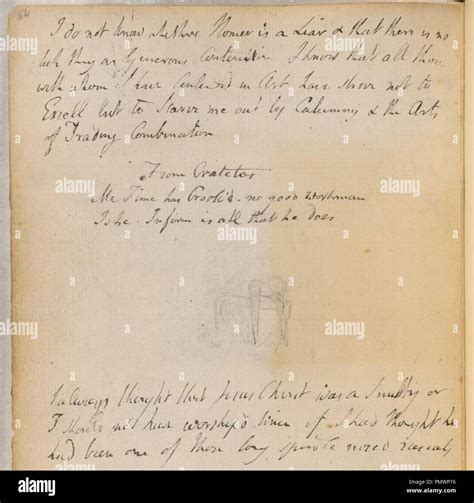 64
I do not know whether Homer is a Liar & that there is no
such thing as Generous Contention I know that all those
with whom I have Contended in Art have strove not to
Excell but to Starve me out by Calumny & the Arts
of Trading Combination
From Cratetos
Me Time has Crook'd. no good Workman
Is he. Infirm is all that he does
I always thought that Jesus Christ was a Snubby or
I should not have worship'd him if I had thought he
had been one of those long spindle nosed rascals
alamy
alamy
alamy
alamy
Image ID: PMWP76
www.alamy.com